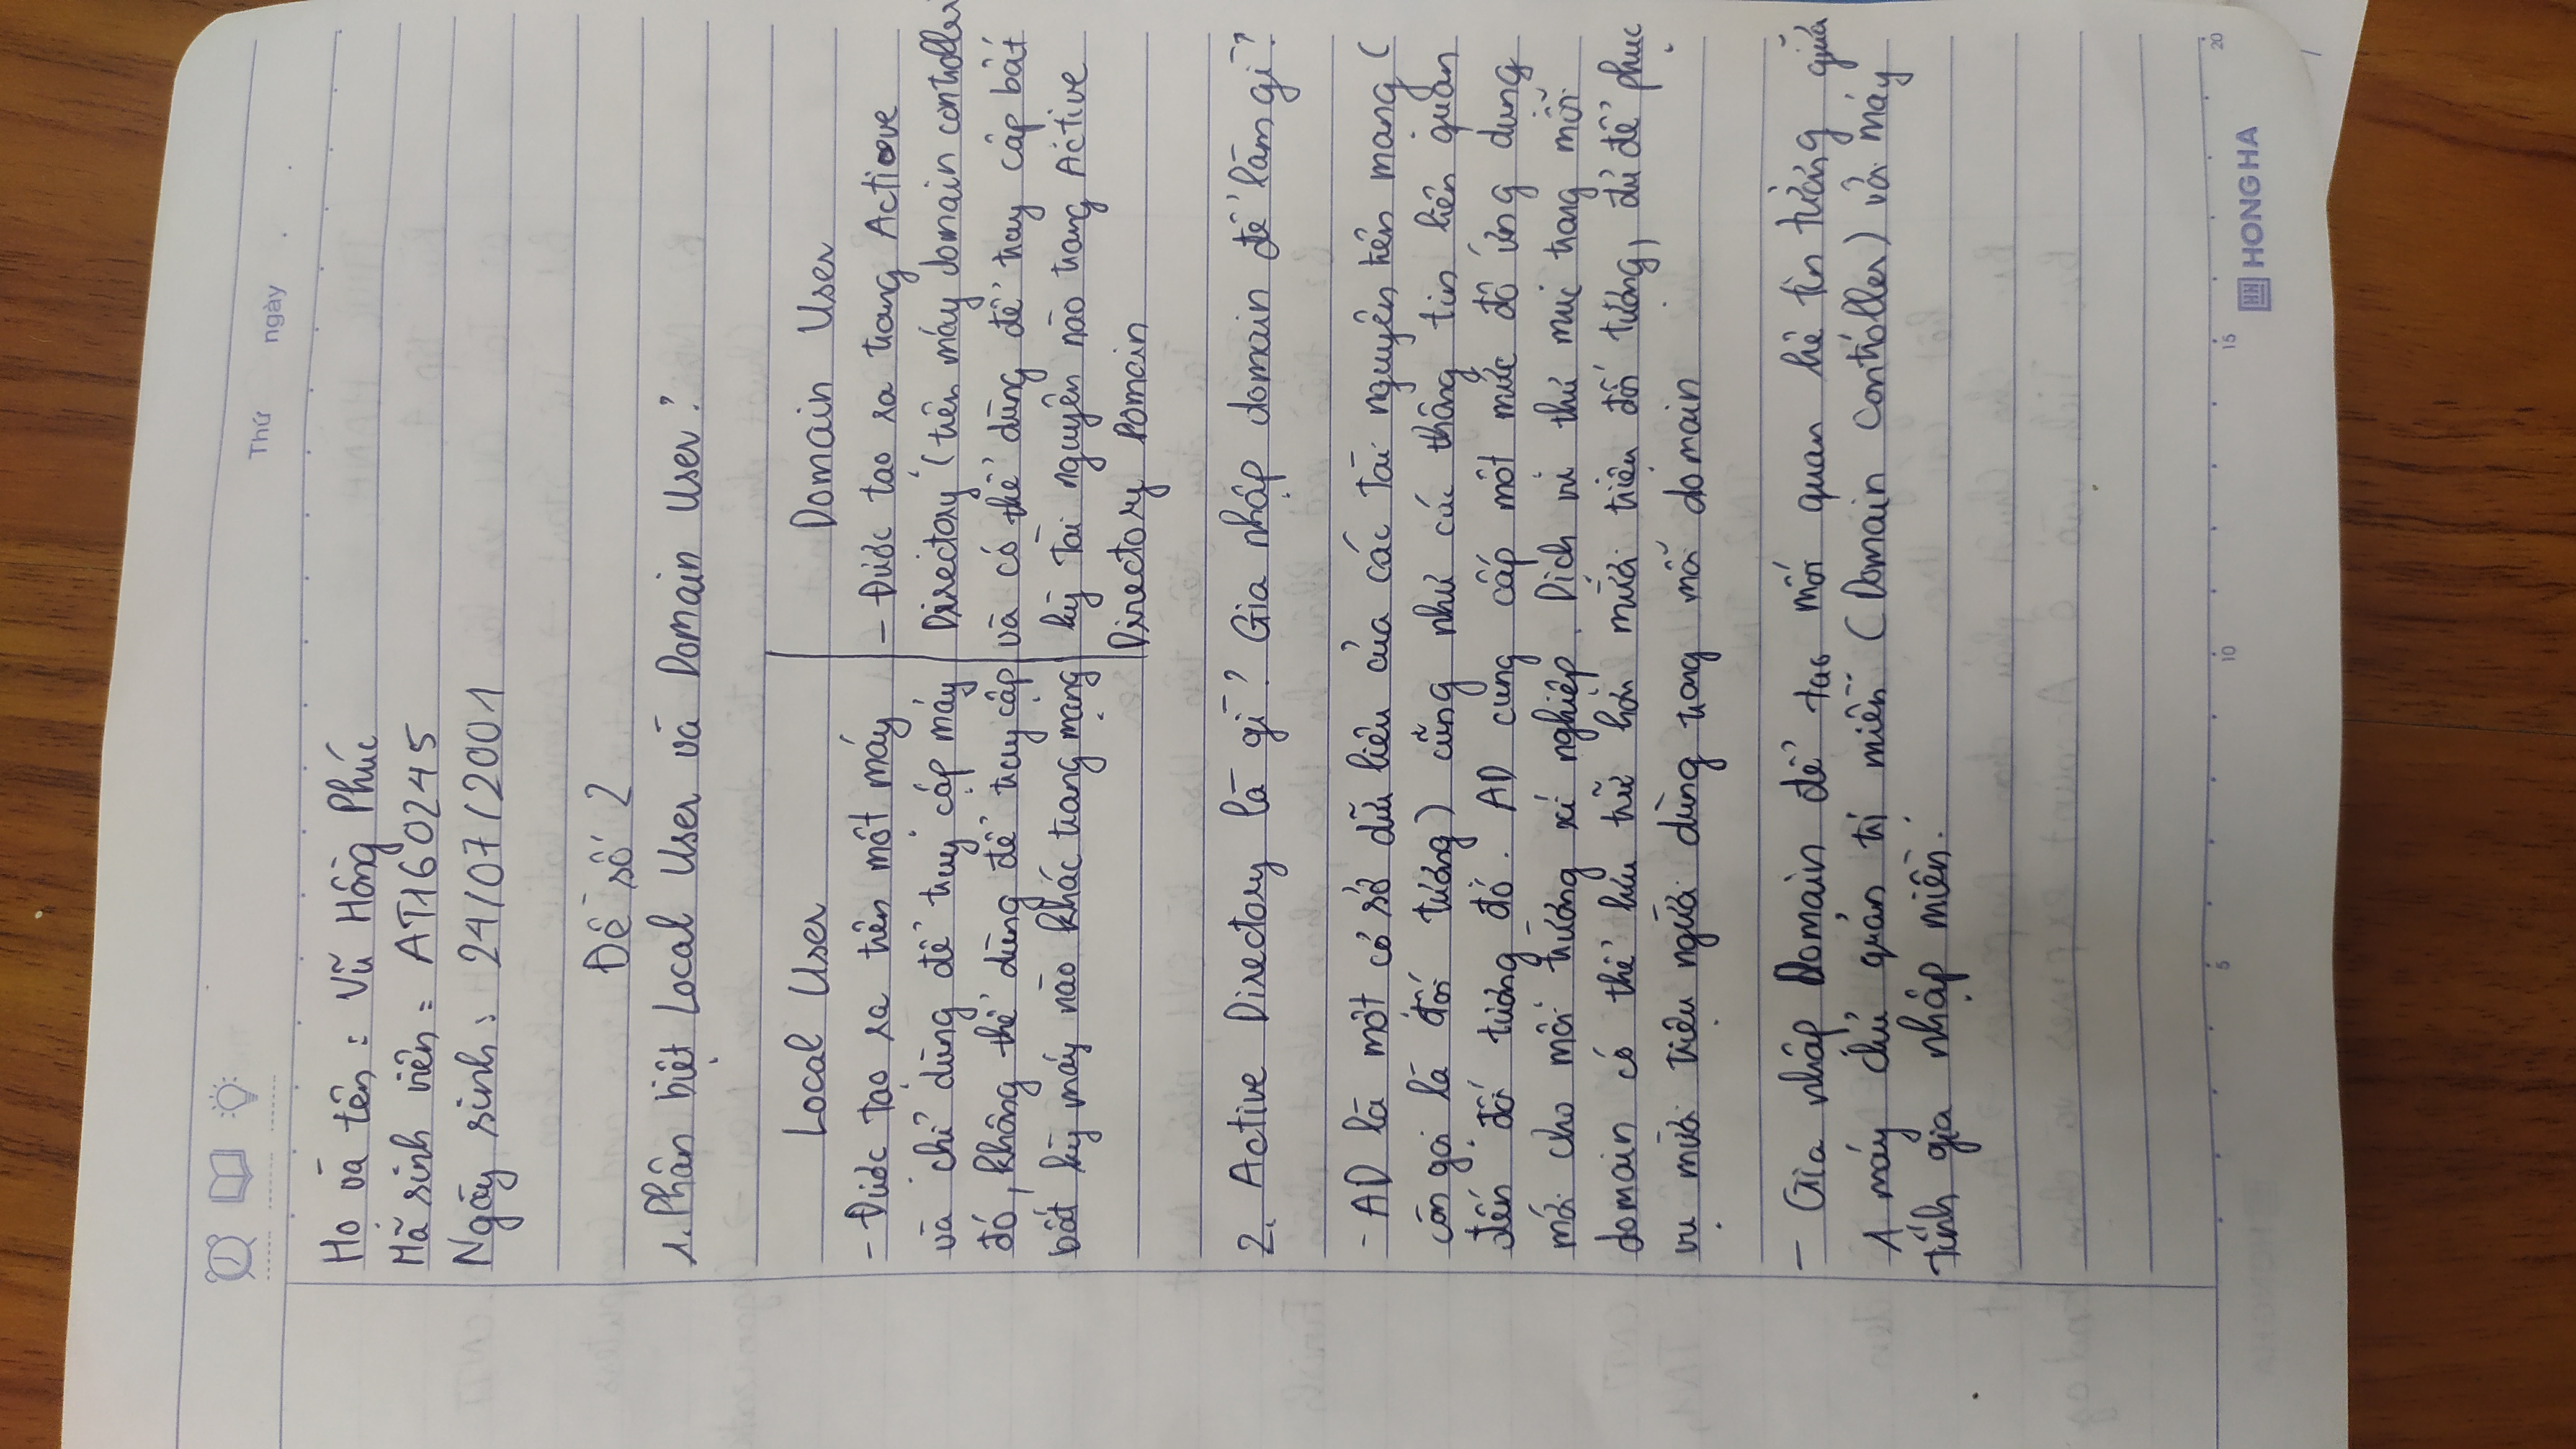 Thứ ngày
Họ và tên : Vũ Hồng Phúc
Mã sinh viên : AT160245
Ngày sinh : 24/07/2001
Đề số 2
1. Phân biệt Local User và Domain User ?
Local User
- Được tạo ra trên một máy
và chỉ dùng để truy cập máy
đó, không thể dùng để truy cập
bất kỳ máy nào khác trong mạng
Domain User
- Được tạo ra trong Active
Directory (trên máy domain controller
và có thể dùng để truy cập bất
kỳ tài nguyên nào trong Active
Directory Domain
2. Active Directory là gì ? Gia nhập domain để làm gì ?
- AD là một cơ sở dữ liệu của các tài nguyên trên mạng (
còn gọi là đối tượng) cũng như các thông tin liên quan
đến đối tượng đó. AD cung cấp một mức độ ứng dụng
mới cho môi trường xí nghiệp. Dịch vụ thư mục trong mỗi
domain có thể lưu trữ hơn mười triệu đối tượng, đủ để phục
vụ mười triệu người dùng trong mỗi domain
- Gia nhập Domain để tạo mối quan hệ tin tưởng giữa
1 máy chủ quản trị miền (Domain Controller) với máy
tính gia nhập miền.
5 10 15 20
HONG HA